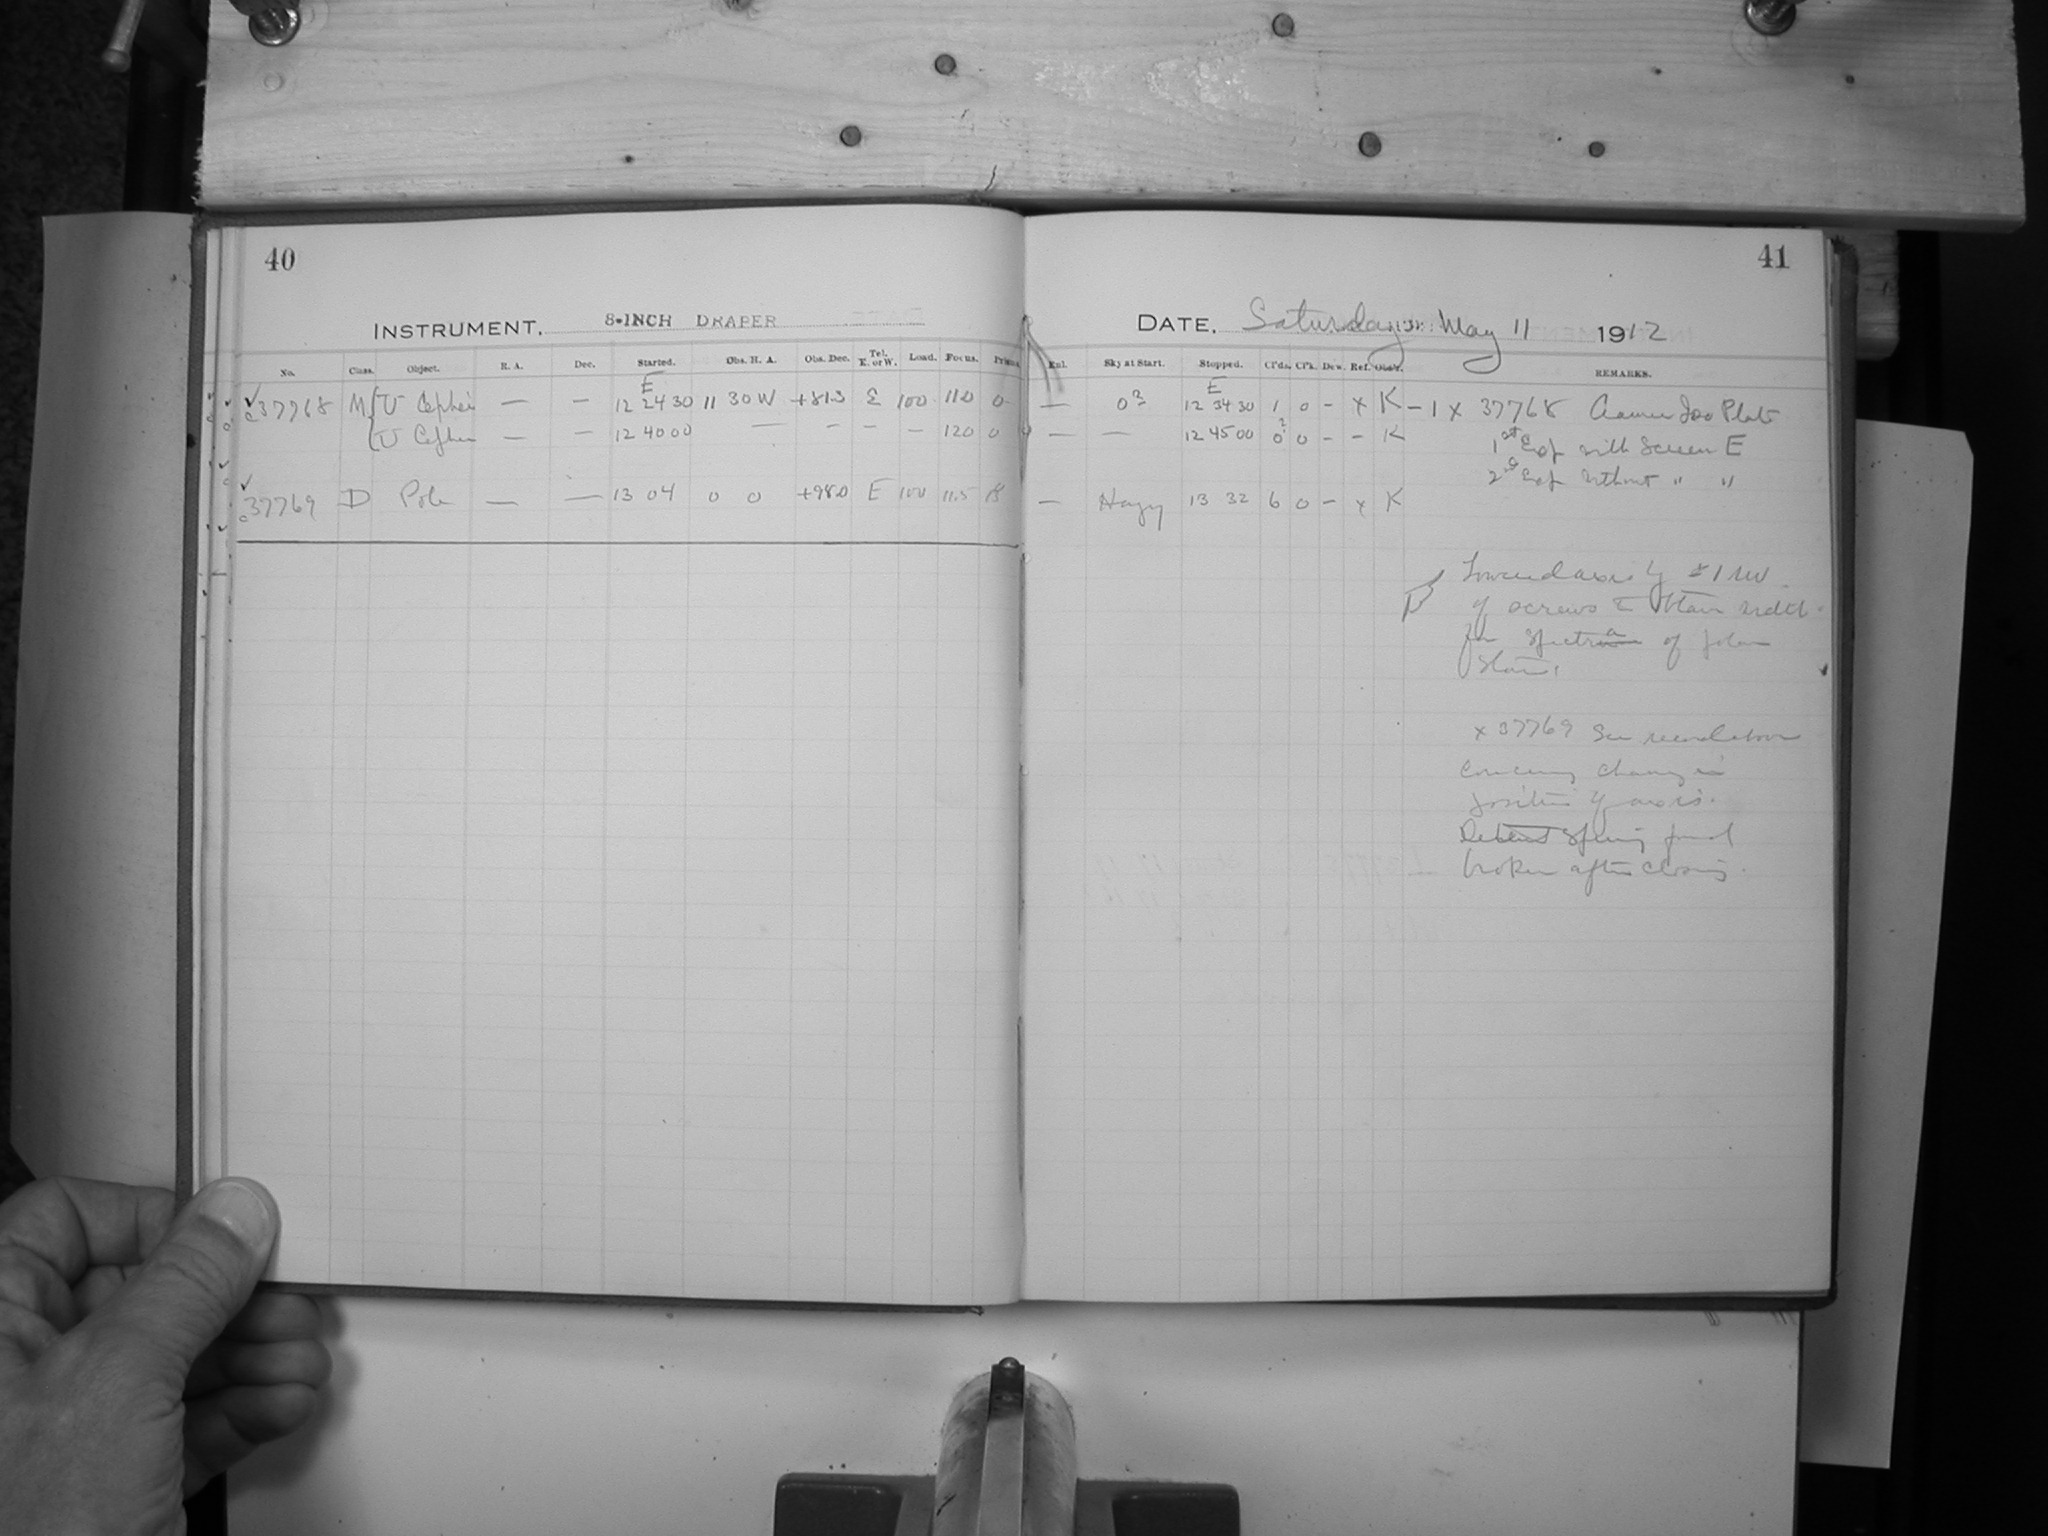 40
41
INSTRUMENT. 8-INCH DRAPER
DATE. Saturday May 11 1912
No. Class. Object. R. A. Dec. Started. Obs. R. A. Obs. Dec. Tel. E. or W. Load. Focus. Prisms.
Sky at Start. Stopped. Cl'ds. Cl'k. Dew. Ref. Obs'r. REMARKS.
E
E
37768 M U Cephei — — 12 24 30 11 30 W +81.3 E 100 11.0 0 — 0 12 34 30 1 0 - x K - 1 x 37768 Cramer Iso Plate
U Cephei — — 12 40 00 — - - - 120 0 — — 12 45 00 0 0 - - K
1st Exp with Screen E
2nd Exp without " "
37769 D Pole — — 13 04 0 0 E 100 11.5 B — Hazy 13 32 6 0 - x K
Lowered axis by 1 rev
of screws to obtain width
for spectra of polar
Stars.
x 37769 See record above
concerning change in
position of axis.
spring found
broken after closing.